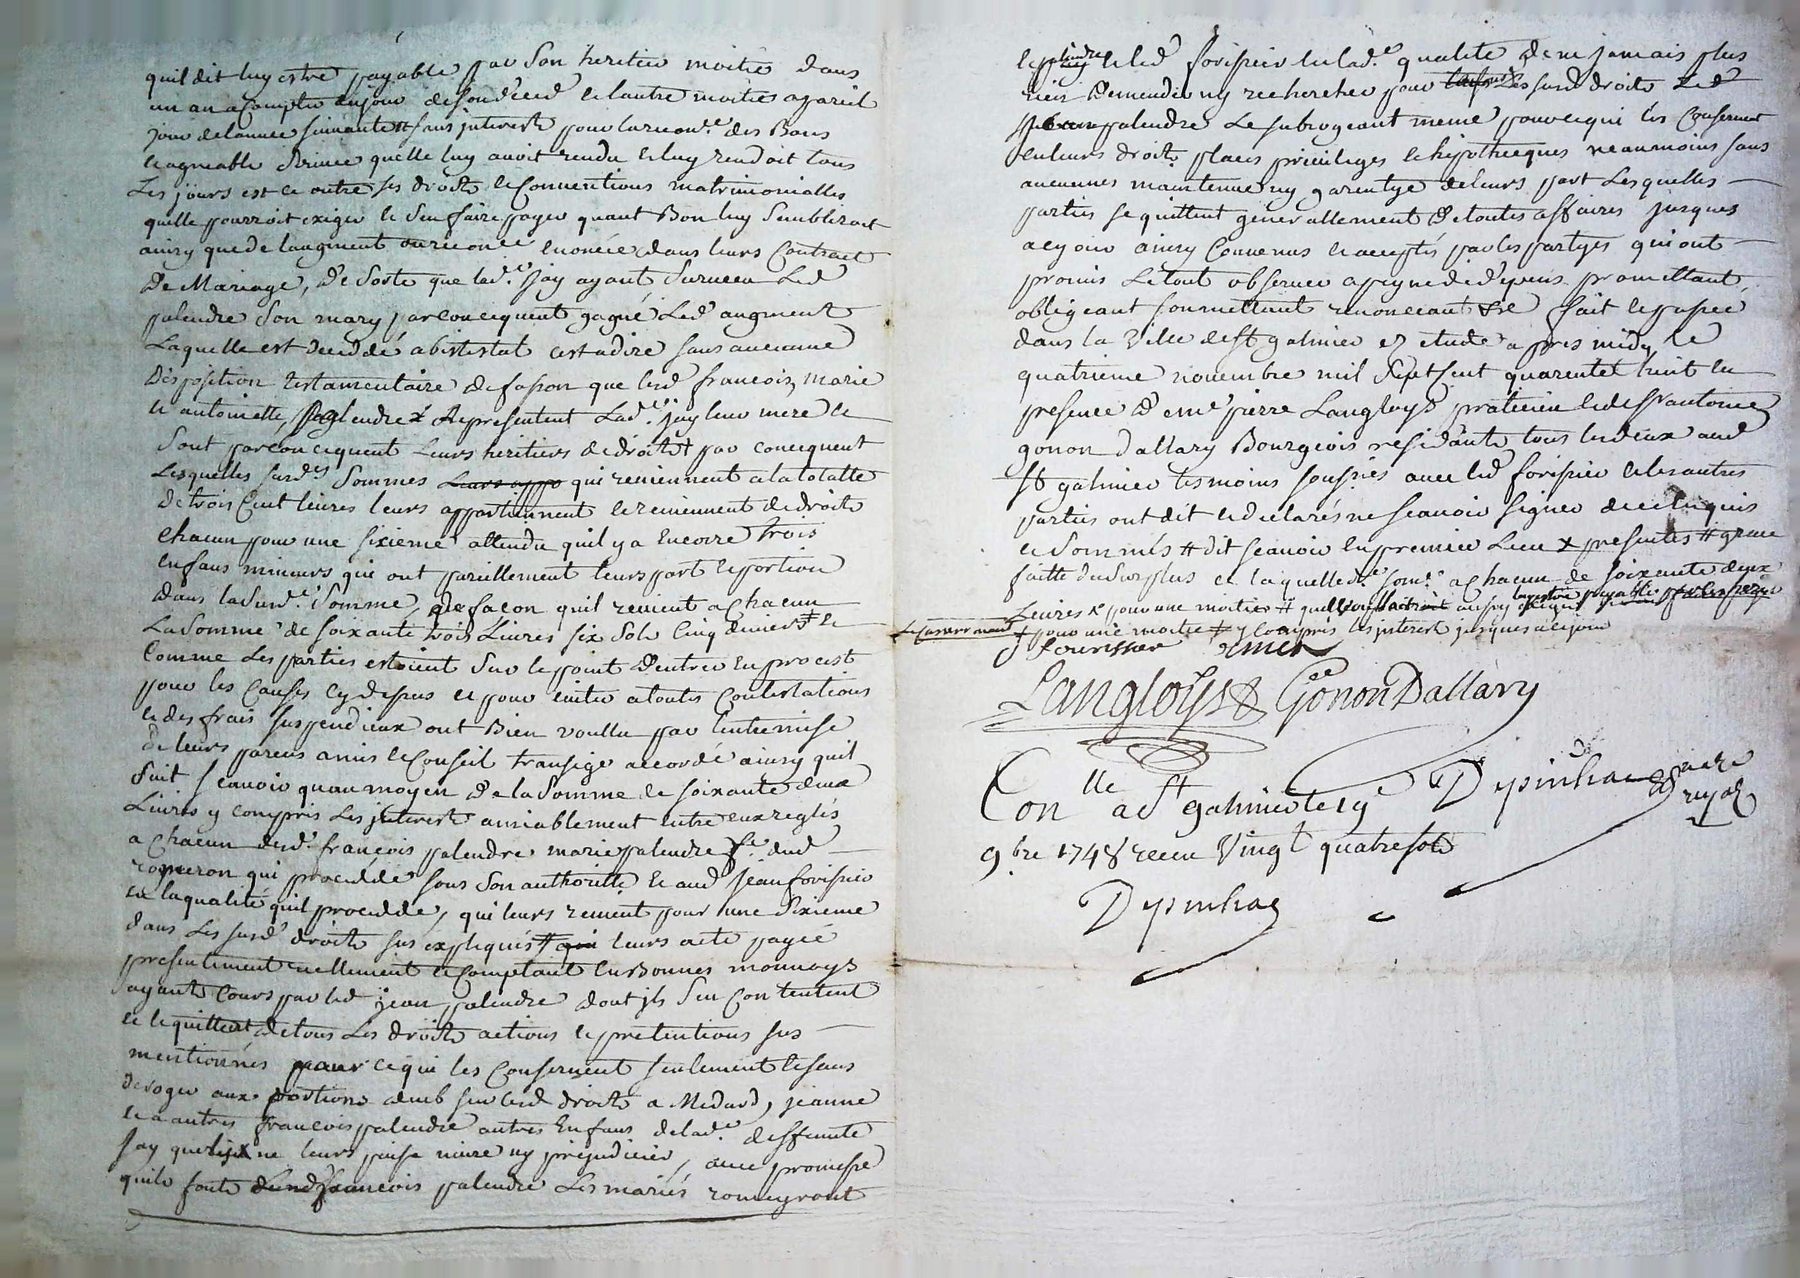 quil dit luy estre payable par son heritier moitié dans
un an acompter du jour de son deced et lautre moitié a pareil
jour de lannée suivante # sans interests pour la recon.ce des Bons
et agreable service quelle luy avoit rendu et luy rendoit tous
Les jours est ce outre ses droits et Conventions matrimonialles
quelle pourroit exiger et sen faire payer quant Bon luy Sembleroit
ainsy que de laugment enoncée dans leurs Contract
De Mariage, De Sorte que lad.e Jay ayant Survecu Led
palendre Son mary par conciquent gagné Led augment
Laquelle est deceddé abistestat cest adire sans aucunne
Disposition testamentaire de fasson que lesd francois, marie
et antoinette, palendre Representent Lad.e Jay leur mere et
Sont par conciquent Leurs heritiers de droits par conciquent
Lesquelles surd.es Sommes Leurs appo qui reviennent a la totalle
De trois Cent livres leurs appartiennent et reviennent de droits
chacun pour une sixieme attendu quil y a Encorre trois
enfans mineurs qui ont pareillement leurs part et portion
Dans la surd.e Somme, de facon quil revient a chacun
La Somme de soixante trois Livres six Sols Cinq deniers et
Comme Les parties estoient Sur le point Dentrer En procest
pour les Causes cy dessus et pour eviter a toutes Contestations
et des frais suspendieux ont Bien voullu par lentremise
de leurs parens amis et Conseil transigé accordé ainsy quil
Suit scavoir quau moyen De la Somme de soixante deux
Livres y compris Les interests amiablement entre eux reglés
a chacun desd. francois palendre marie palendre fe dud
romeron qui proceddé sous Son authorité et aud Jean forissier
en la qualité quil proceddé, qui leurs revient pour une Sixieme
dans Les surd droits sus expliqués # qui leurs acte payée
presentement reellement et Comptant en Bonnes monnoys
ayants Cours par led jean palendre dont ils Sen Contentent
et le quittent de tous Les droits actions et pretentions sus
mentionnés pour ce qui les Conservent seulement et sans
deroger aux portions deub sur lesd droits a Medard, jeanne
et a autres francois palendre autres Enfans de lad.e deffunte
Jay que ne leurs puisse nuire ny prejudicier, avec promesse
quils font dud francois palendre Les mariés romeyront
et led forissier en lad.e qualité de ne jamais plus
rien Demender ny rechercher pour Les surd droits Led
palendre Le subrogeant meme pour ce qui les Conservent
en leurs droits places privileges et hipotheques neaumoins sans
aucunnes maintenue ny garentye de leurs part Lesquelles
parties se quittent generallement de toutes affaires jusques
a ce jour ainsy Convenus et acceptés par les partyes qui ont
promis Le tout observer a peyne de depens promettant
obligeant sourmettant renonceant &c fait et passée
dans la Ville de St galmier et etude appres midy Le
quatrieme novembre mil Sept sent quarentet huit en
presence de me pierre Langloys praticien et de Sr antoine
gonon Dallary Bourgeois residants tous les deux aud
St galmier tesmoins soussnes avec led forissier et les autres
parties ont dit et declarés ne scavoir signer de ce enquis
et Sommés # dit scavoir En premier Lieu x presentes # grace
faitte du surplus et laquelle d.e som.e a chacun de soixante deux
Livres x pour une moitié #
Le Conservment x pour une moitié # y compris les interets jusques a ce jour
J fourissier
Langloys Gonon Dallary
Con.lle a St galmier le 19
9.bre 1748 receu Vingt quatre sols
Depinhac
Nore royal
Depinhac